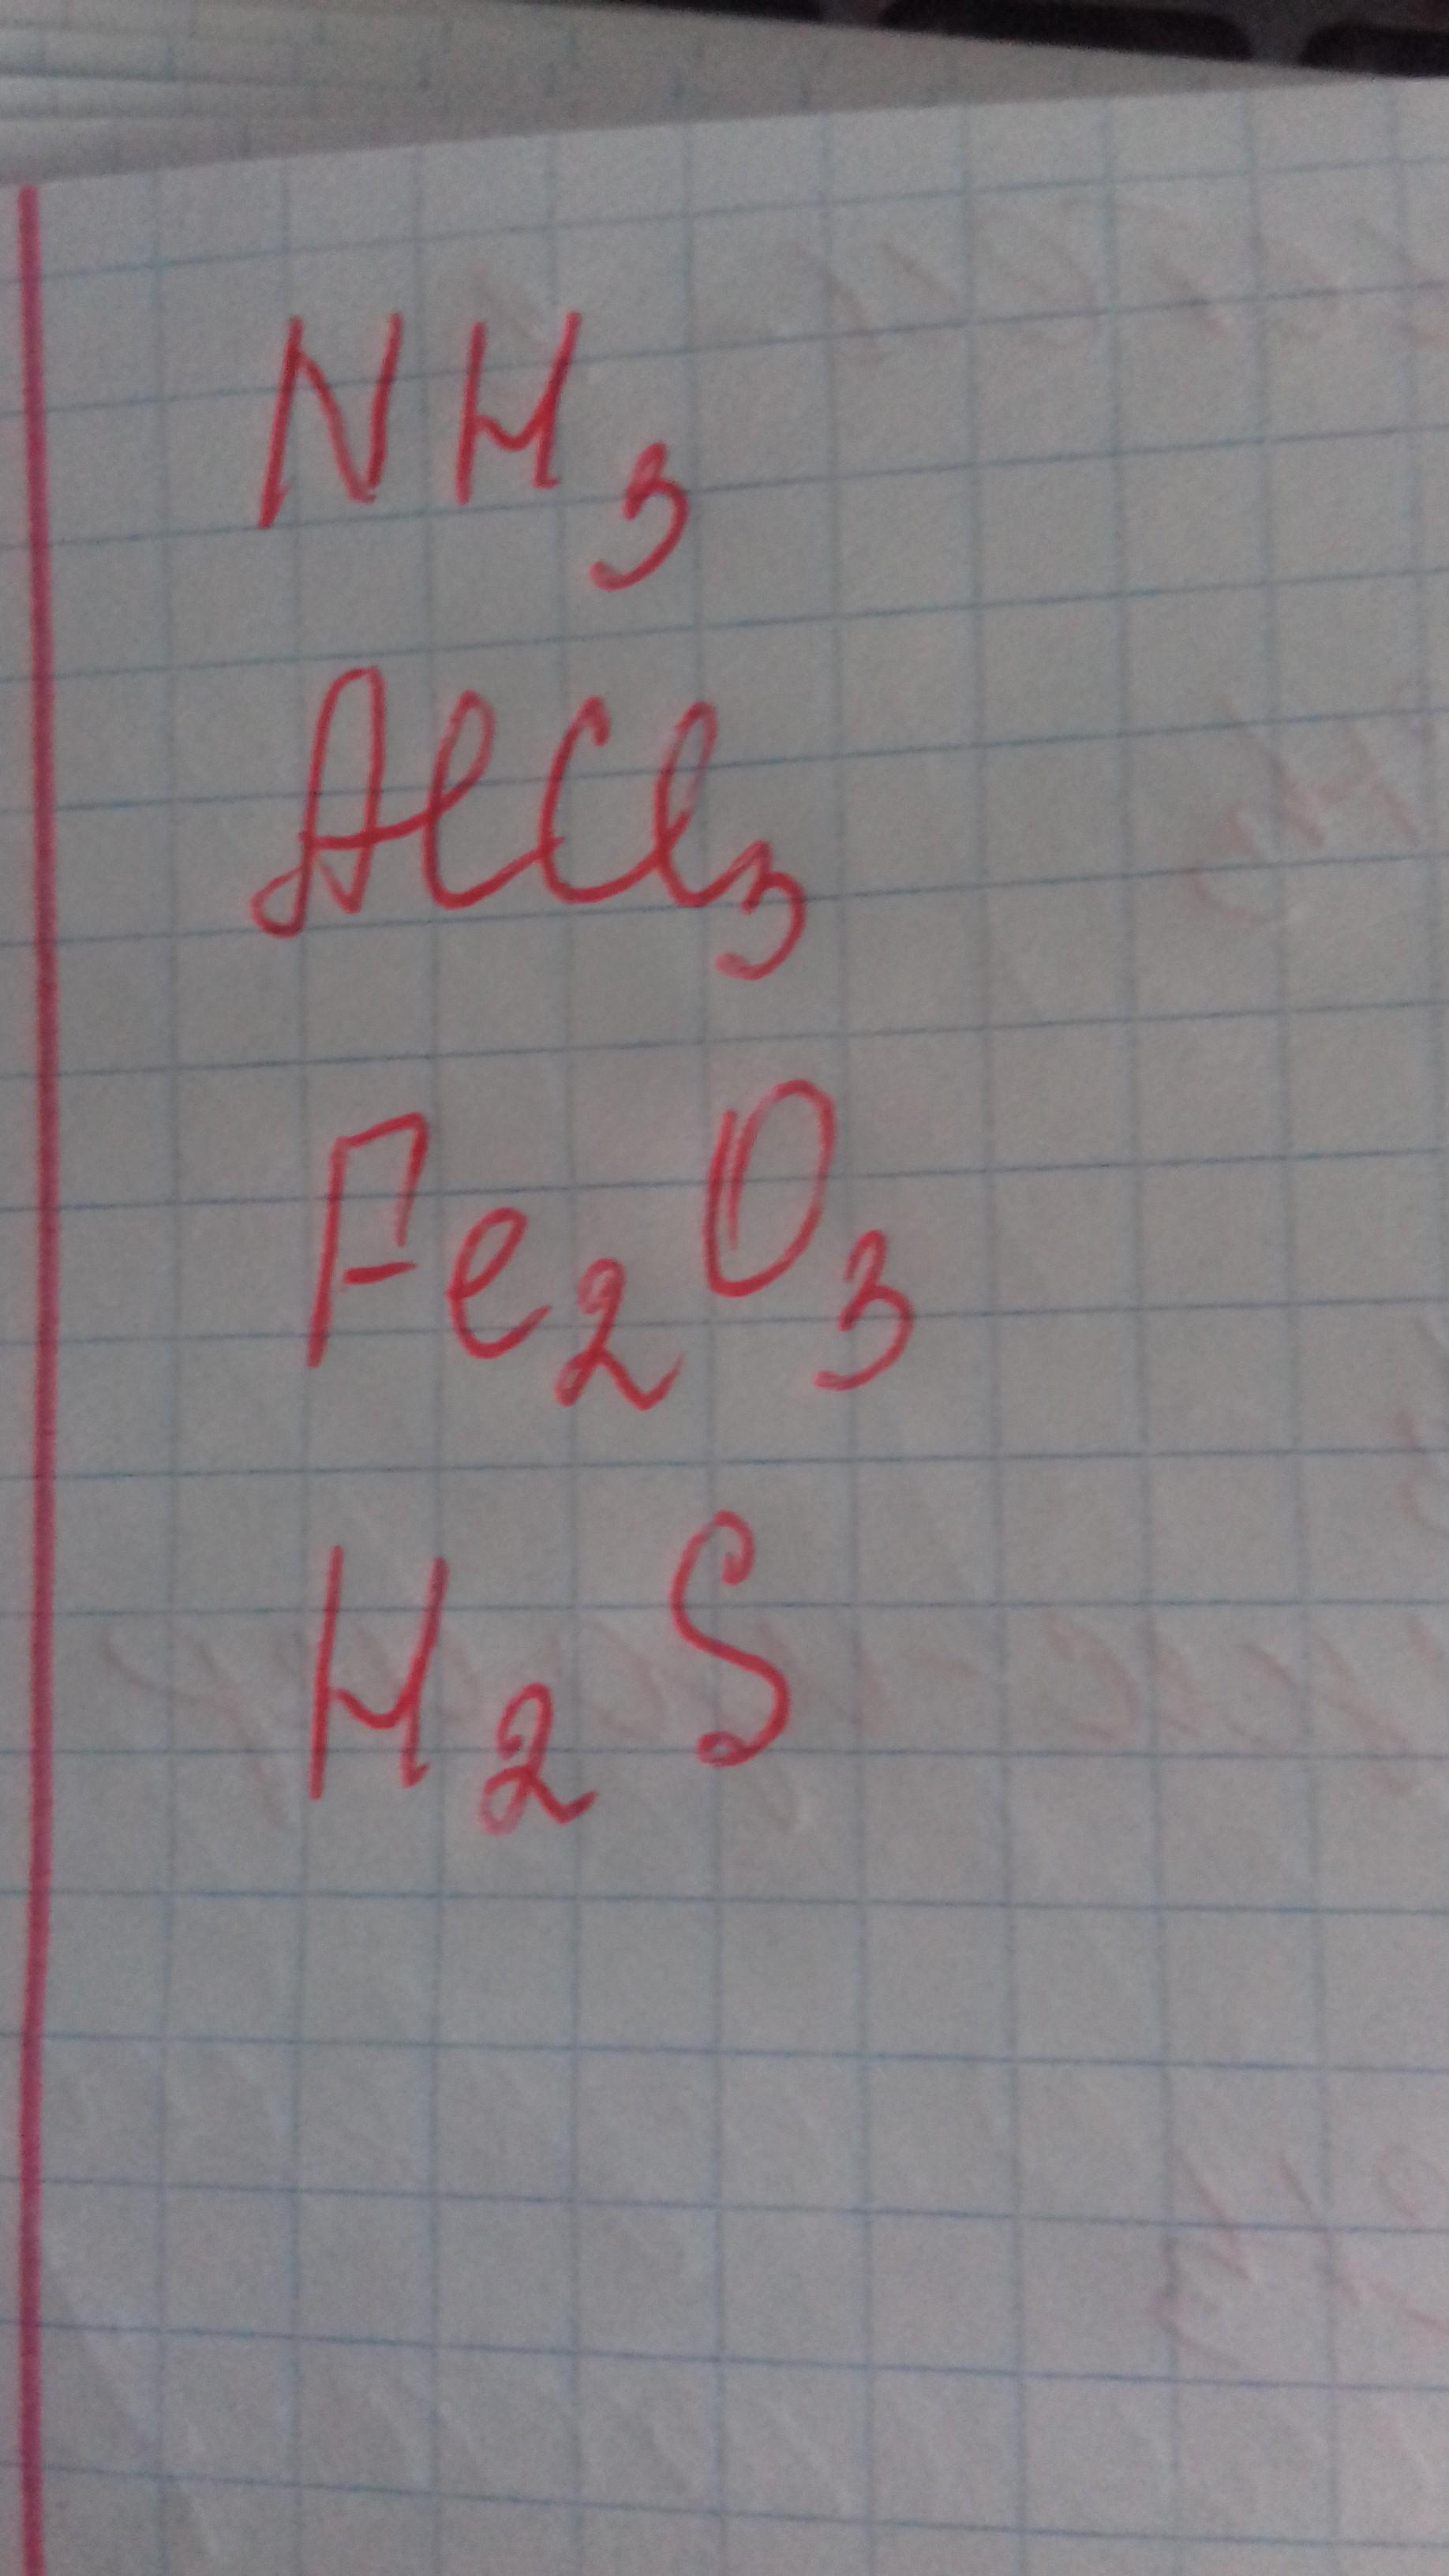 NH₃
AlCl₃
Fe₂O₃
H₂S